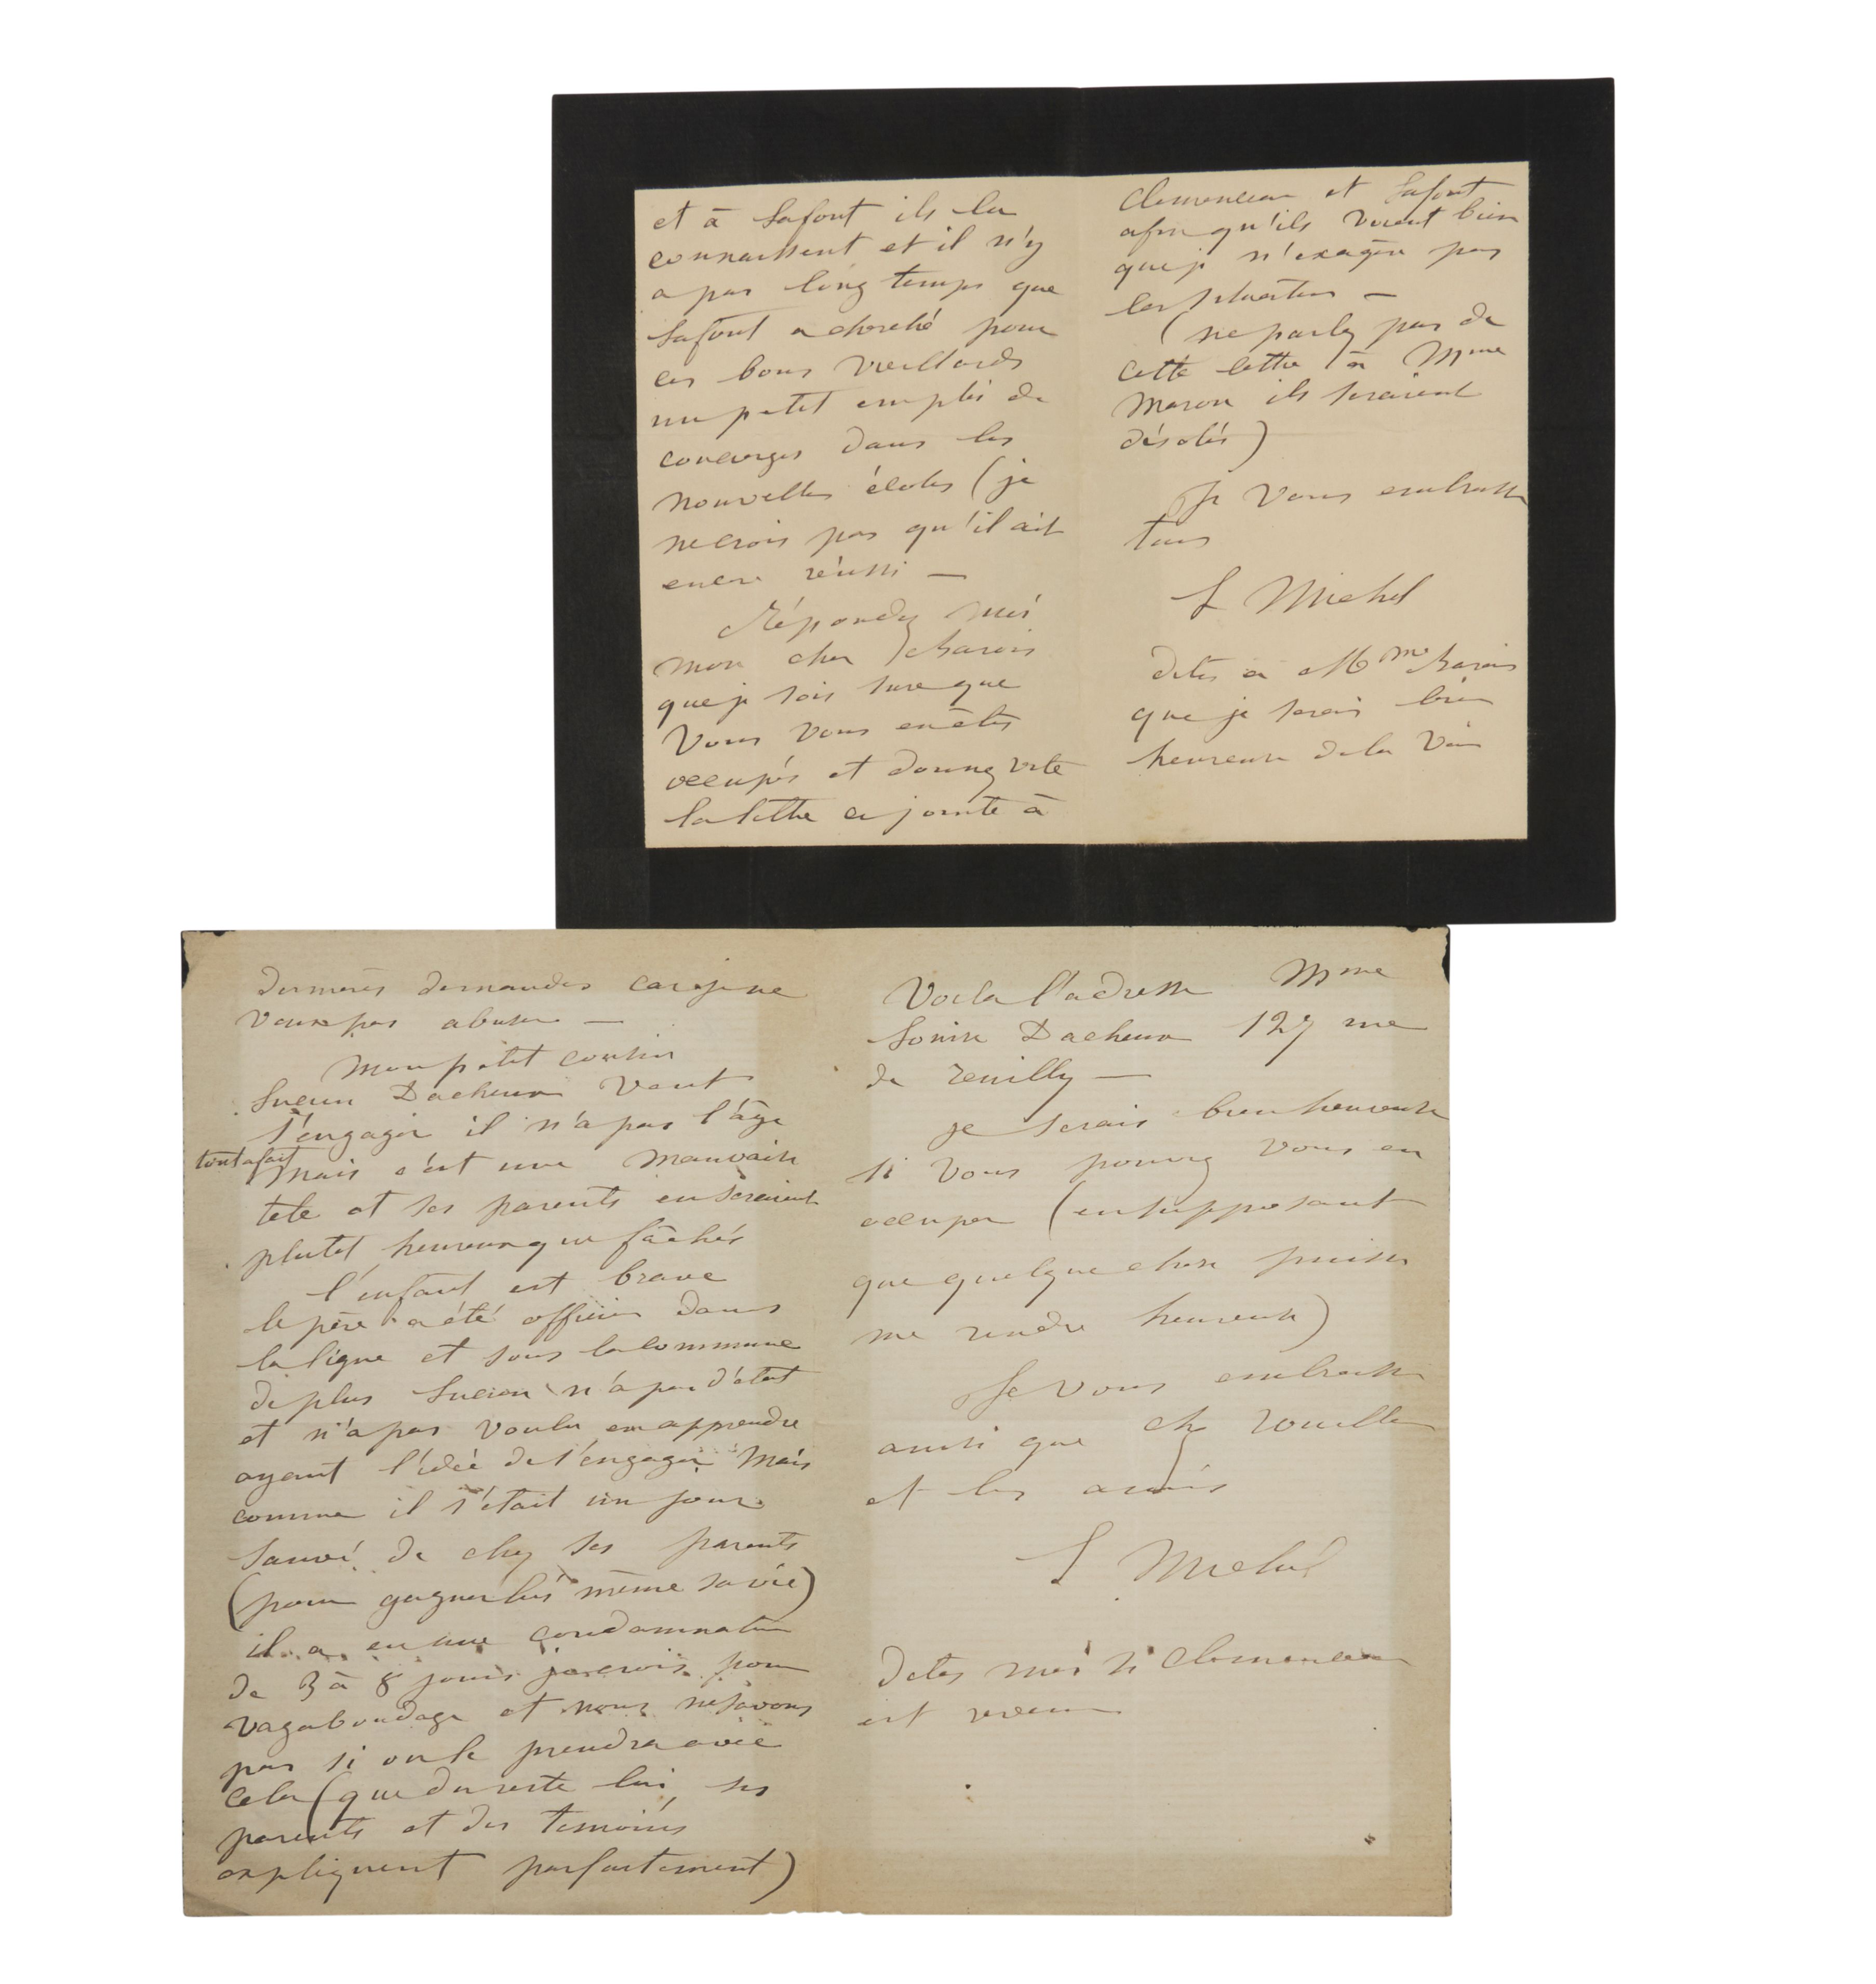 et à Lafont ils la
connaissent et il n'y
a pas long temps que
Lafont a cherché pour
ces bons vieillards
un petit emploi de
concierges dans les
nouvelles écoles (je
ne crois pas qu'il ait
encore réussi —
Répondez moi
mon cher
que je sois sure que
vous vous en êtes
occupés et donnez vite
la lettre ci jointe à
Clemenceau et Lafont
afin qu'ils voient bien
que je n'exagère pas
la situation —
(ne parlez pas de
cette lettre à Mme
ils seraient
désolés)
Je vous embrasse
tous
L Michel
dites à Mme
que je serais bien
heureuse de la voir
dernières demandes car je ne
veux pas abuser —
Mon petit cousin
Lucien Dacheux veut
s'engager il n'a pas l'âge
tout a fait
mais c'est une mauvaise
tete et ses parents en seraient
plutot heureux que fâchés
l'enfant est brave
le père a été officier dans
la ligne et sous la commune
de plus Lucien n'a pas d'état
et n'a pas voulu en apprendre
ayant l'idée de s'engager Mais
comme il s'était un jour
sauvé de chez ses parents
(pour gagner lui même sa vie)
il a eu une condamnation
de 3 à 8 jours je crois pour
vagabondage et nous ne savons
pas si on le prendra avec
cela (que du reste lui, ses
parents et des temoins
expliquent parfaitement)
Voila l'adresse Mme
Louise Dacheux 127 rue
de reuilly —
je serais bien heureuse
si vous pouvez vous en
occuper (en supposant
que quelque chose puisse
me rendre heureuse)
Je vous embrasse
ainsi que
et les amis
L Michel
dites moi si Clemenceau
est revenu